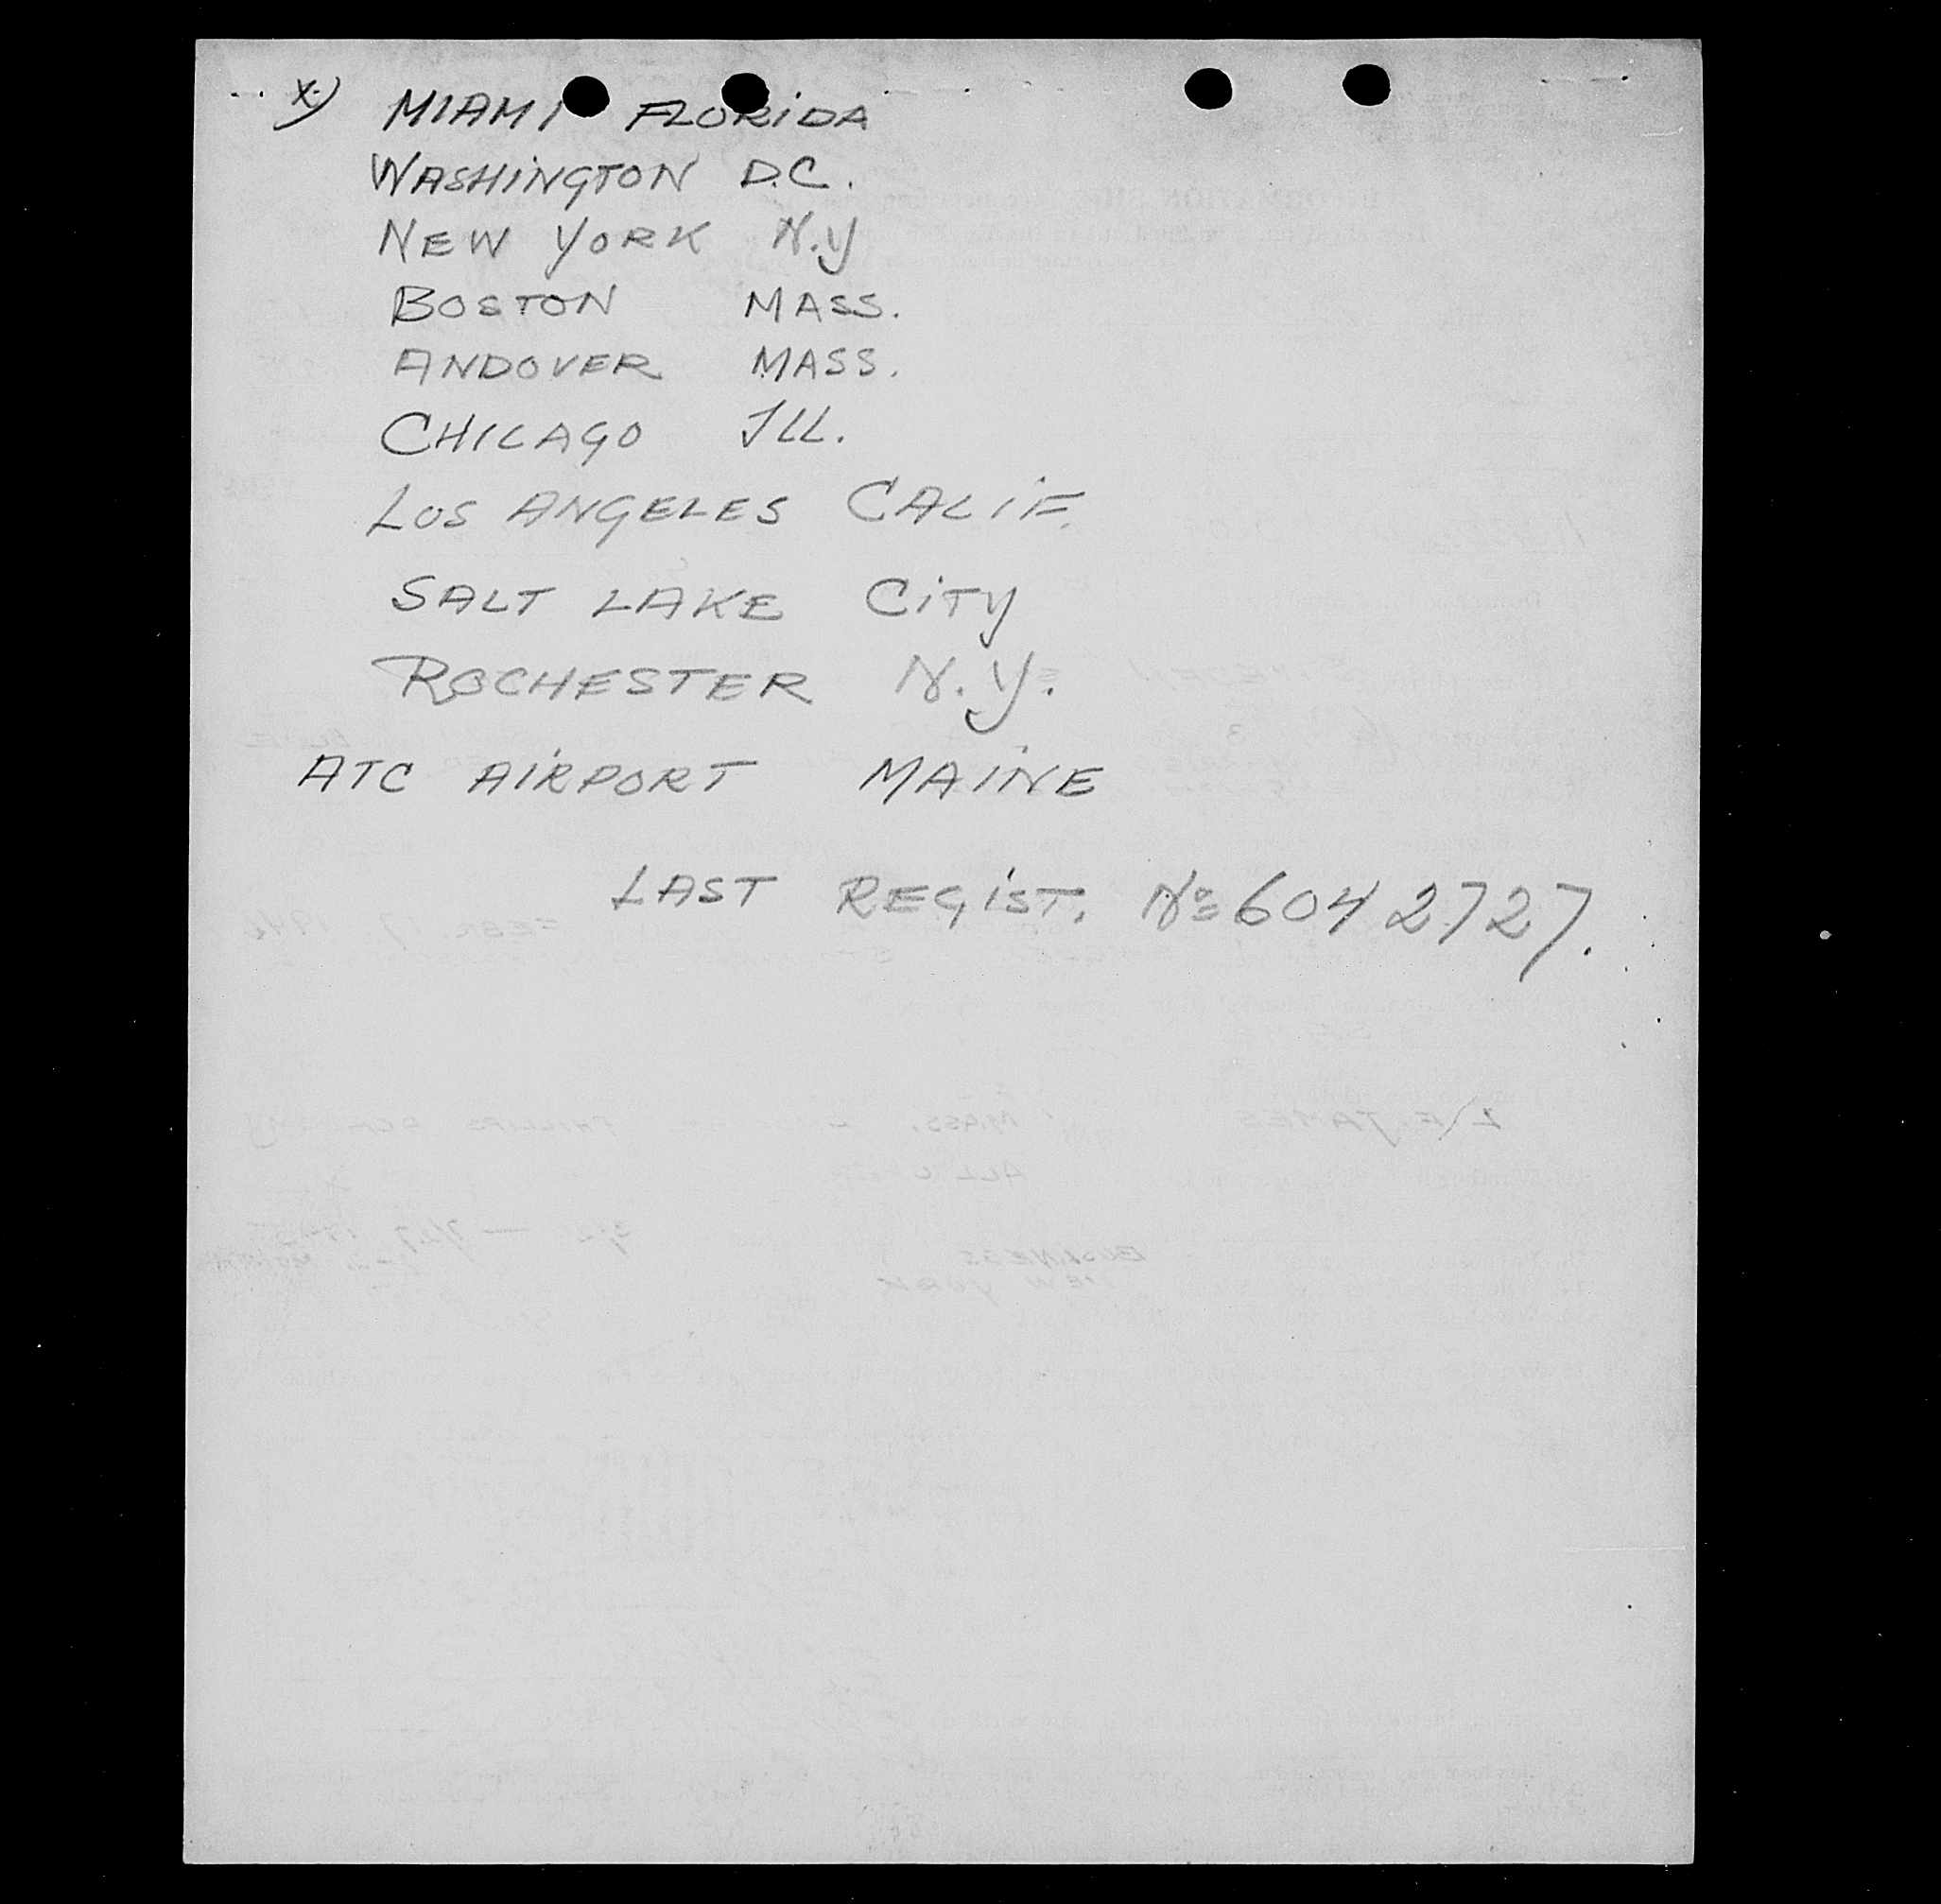 x) MIAMI FLORIDA
WASHINGTON D.C.
NEW YORK N.Y
BOSTON MASS.
ANDOVER MASS.
CHICAGO ILL.
LOS ANGELES CALIF.
SALT LAKE CITY
ROCHESTER N.Y.
ATC AIRPORT MAINE
LAST REGIST. № 6042727.